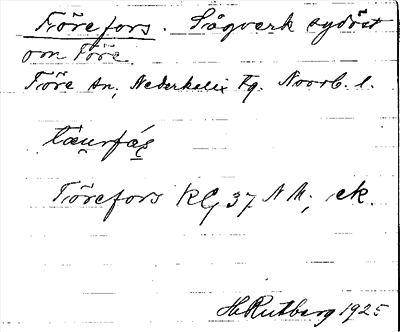 Törefors. Sågverk sydöst
om Töre.
Töre sn, Nederkalix tg. Norrb. l.
Törefors RG 37 NM, ek.
H Rutberg 1925